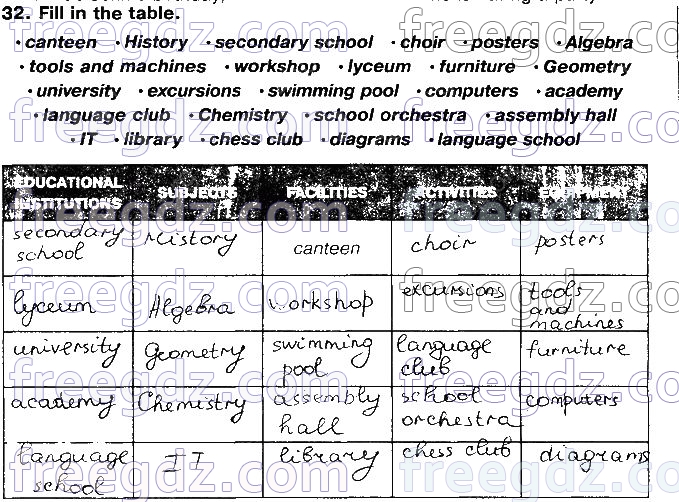 32. Fill in the table.
• canteen • History • secondary school • choir • posters • Algebra
• tools and machines • workshop • lyceum • furniture • Geometry
• university • excursions • swimming pool • computers • academy
• language club • Chemistry • school orchestra • assembly hall
• IT • library • chess club • diagrams • language school
EDUCATIONAL INSTITUTIONS SUBJECTS FACILITIES ACTIVITIES EQUIPMENT
secondary school History canteen choir posters
lyceum Algebra workshop excursions tools and machines
university Geometry swimming pool language club furniture
academy Chemistry assembly hall school orchestra computers
language school IT library chess club diagrams